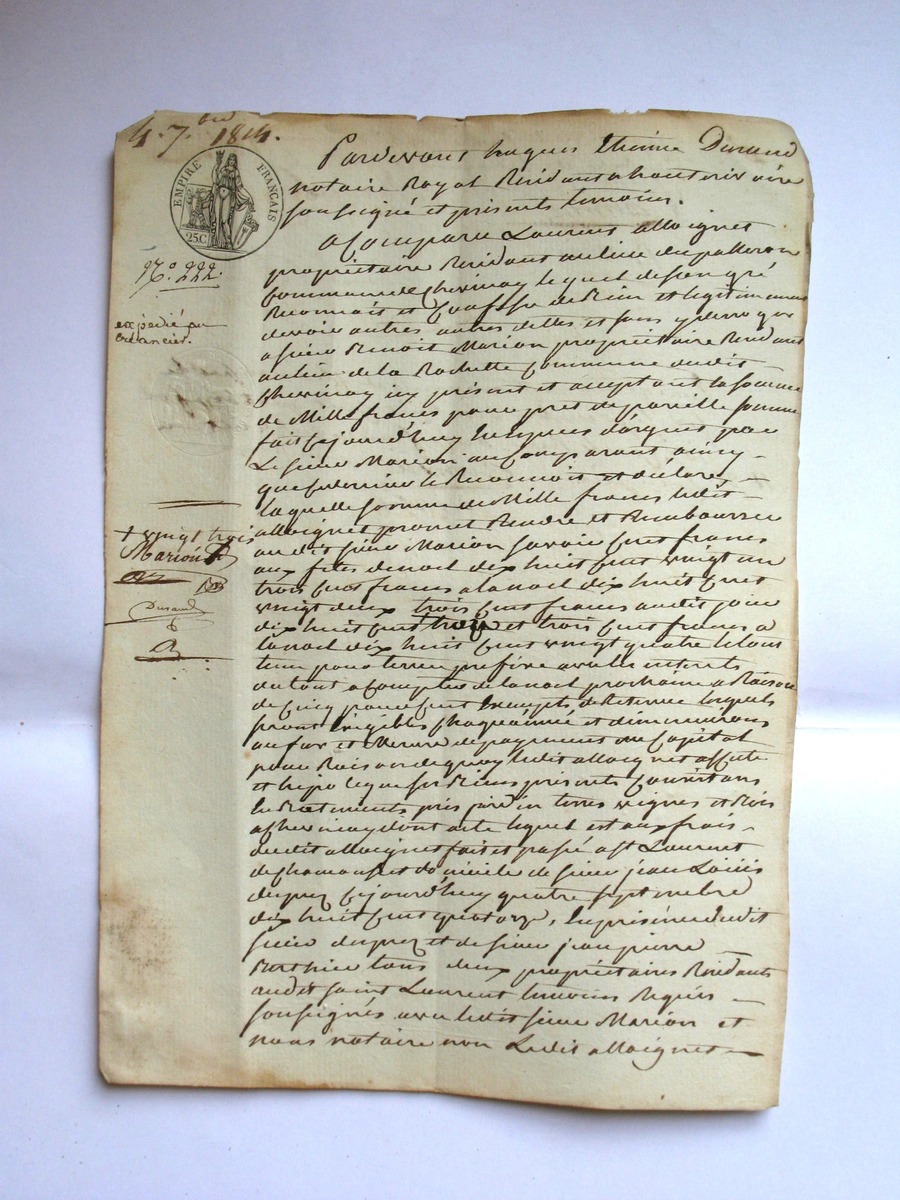 4. 7.bre 1814.
EMPIRE FRANÇAIS
25.C
N.o 222.
expédié au
créancier.
+ vingt trois
Marion
Durand
Pardevant hugues Etienne Durand
notaire Royal Residant a hauterivoire
soussigné et présents temoins.
a Comparu Laurent alloignet
propriétaire Residant au lieu du
Commune de Chevinay lequel de son gré
Reconnait et Confesse de bien et legitimement
devoir autres autres dettes et sans y deroger
a sieur Benoit Marion propriétaire Residant
au lieu de la Rochette Commune dudit
Chevinay icy présent et acceptant la somme
de Mille francs pour pret de pareille somme
fait Cejourd'huy en espèces d'argent par
Le sieur Marion au Comparant ainsy
que ce dernier le Reconnoit et déclare,
laquelle somme de Mille francs ledit
alloignet promet Rendre et Rembourser
audit sieur Marion savoir Cent francs
aux fêtes de noel dix huit Cent vingt un
trois Cent francs a la noel dix huit Cent
vingt deux trois Cent francs audit jour
dix huit Cent trois et trois Cent francs a
la noel dix huit Cent vingt quatre le tout
pour terme prefixe avec les interets
du tout a Compter de la noel prochaine a Raison
de Cinq pour Cent Exempts de Retenue lesquels
seront Exigibles Chaque année et diminueront
au fur et Mesure de payement du Capital
pour Raison de quoy ledit alloignet affecte
et hipoteque ses Biens présents Consistans
En Batiments prés jardin terres vignes et Bois
a Chevinay dont acte lequel est aux frais
dudit alloignet fait et passé a St Laurent
de Chamousset domicile de sieur jean Louis
duprez Cejourd'huy quatre septembre
dix huit Cent quatorze, En présence dudit
sieur duprez et de sieur jean pierre
tous deux propriétaires Residants
audit saint Laurent temoins Requis
soussignés avec ledit sieur Marion et
nous notaire non Ledit alloignet